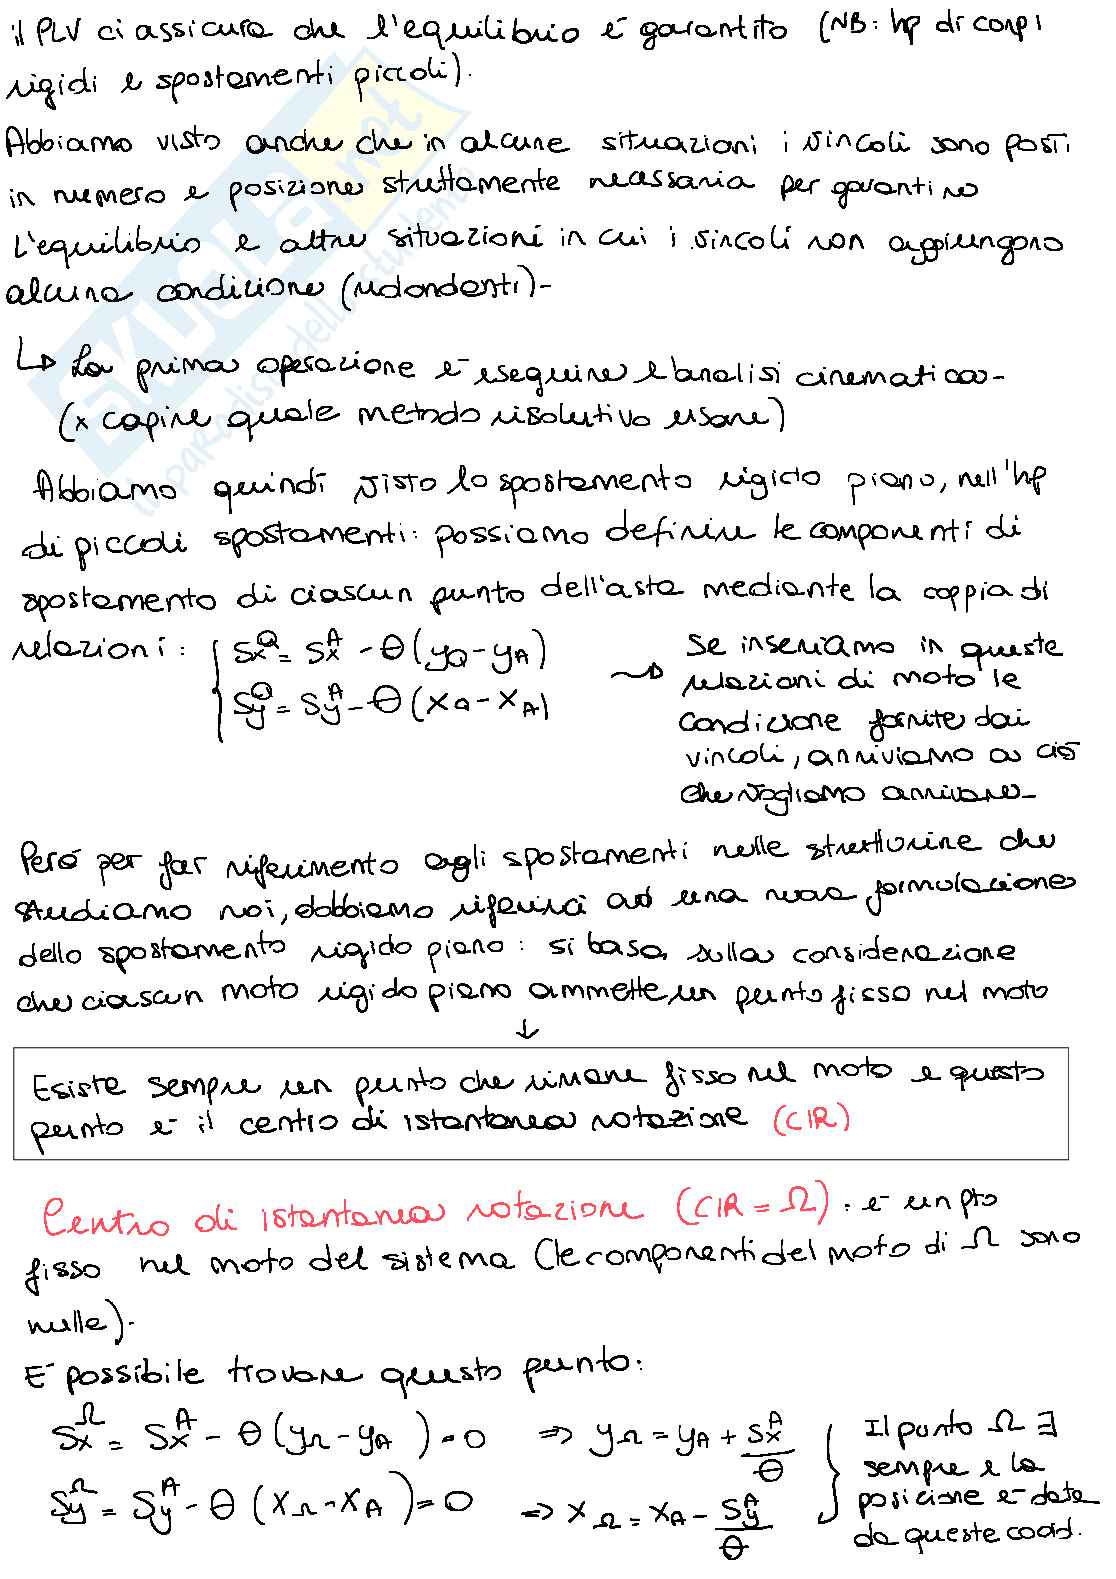 il PLV ci assicura che l'equilibrio é garantito (NB: hp di corpi
rigidi e spostamenti piccoli).
Abbiamo visto anche che in alcune situazioni i vincoli sono posti
in numero e posizione strettamente necessaria per garantire
l'equilibrio e altre situazioni in cui i vincoli non aggiungono
alcuna condizione (ridondanti)-
↳ La prima operazione é eseguire l'analisi cinematica-
(x capire quale metodo risolutivo usare)
Abbiamo quindi visto lo spostamento rigido piano, nell'hp
di piccoli spostamenti: possiamo definire le componenti di
spostamento di ciascun punto dell'asta mediante la coppia di
relazioni:
Sx^Q = Sx^A - θ(yQ - yA)
Sy^Q = Sy^A - θ(xQ - xA)
→ Se inseriamo in queste
relazioni di moto le
condizione fornite dai
vincoli, arriviamo a ciò
che vogliamo arrivare-
Peró per far riferimento agli spostamenti nelle strutturine che
studiamo noi, dobbiamo riferirci ad una nuova formulazione
dello spostamento rigido piano: si basa sulla considerazione
che ciascun moto rigido piano ammette un punto fisso nel moto
↓
Esiste sempre un punto che rimane fisso nel moto e questo
punto é il centro di istantanea rotazione (CIR)
Centro di istantanea rotazione (CIR = Ω): é un pto
fisso nel moto del sistema (le componenti del moto di Ω sono
nulle).
É possibile trovare questo punto:
Sx^Ω = Sx^A - θ(yΩ - yA) = 0 ⇒ yΩ = yA + Sx^A/θ
Sy^Ω = Sy^A - θ(xΩ - xA) = 0 ⇒ xΩ = xA - Sy^A/θ
Il punto Ω ∃
sempre e la
posizione é data
da queste coord.
SKUOLA.net
il paradiso dello studente